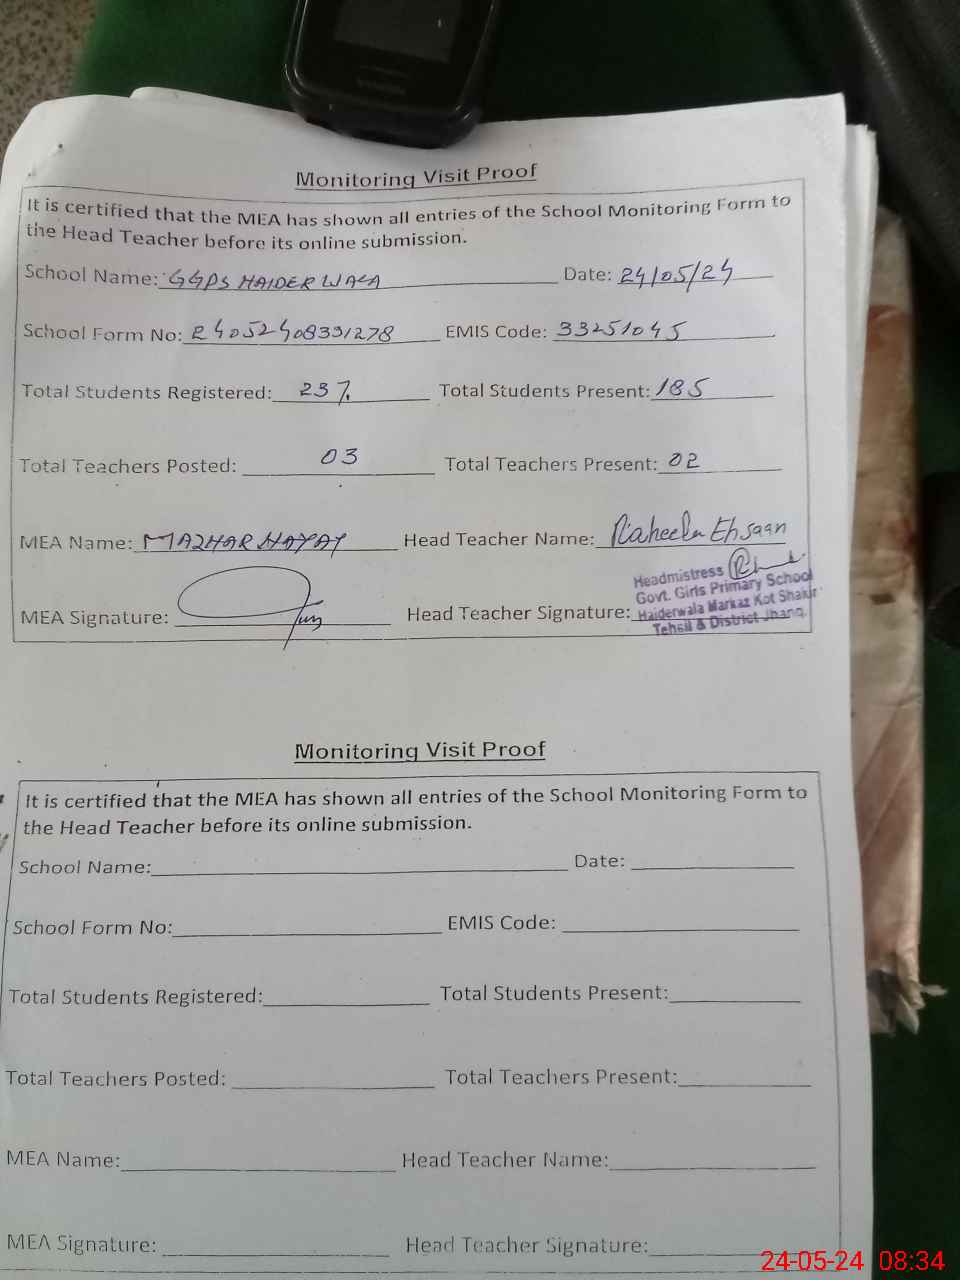 Monitoring Visit Proof
It is certified that the MEA has shown all entries of the School Monitoring Form to
the Head Teacher before its online submission.
School Name: GGPS HAIDER WALA Date: 24/05/24
School Form No: 24052408331278 EMIS Code: 33251045
Total Students Registered: 237 Total Students Present: 185
Total Teachers Posted: 03 Total Teachers Present: 02
MEA Name: MAZHAR HAYAT Head Teacher Name: Raheela Ehsaan
Headmistress
Govt. Girls Primary School
MEA Signature: Head Teacher Signature: Haiderwala Markaz Kot Shakir
Tehsil & District Jhang.
Monitoring Visit Proof
It is certified that the MEA has shown all entries of the School Monitoring Form to
the Head Teacher before its online submission.
School Name: Date:
School Form No: EMIS Code:
Total Students Registered: Total Students Present:
Total Teachers Posted: Total Teachers Present:
MEA Name: Head Teacher Name:
MEA Signature: Head Teacher Signature:
24-05-24 08:34